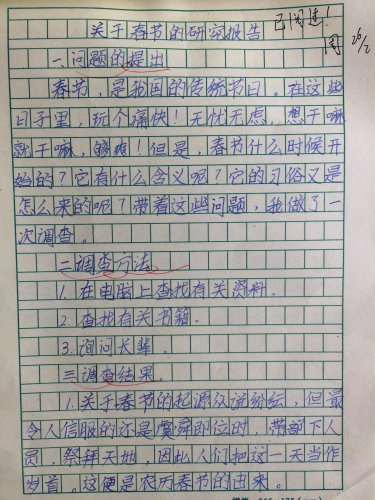 关于春节的研究报告
已阅述!
周 26/2
一.问题的提出
春节,是我国的传统节日。在这些
日子里,玩个痛快!无忧无虑,想干嘛
就干嘛,够爽!但是,春节什么时候开
始的?它有什么含义呢?它的习俗又是
怎么来的呢?带着这些问题,我做了一
次调查。
二.调查方法。
1.在电脑上查找有关资料。
2.查找有关书籍。
3.询问长辈。
三.调查结果。
1.关于春节的起源众说纷纭,但最
令人信服的还是虞舜即位时,带部下人
员,祭拜天地,因此人们把这一天当作
岁首。这便是农历春节的由来。